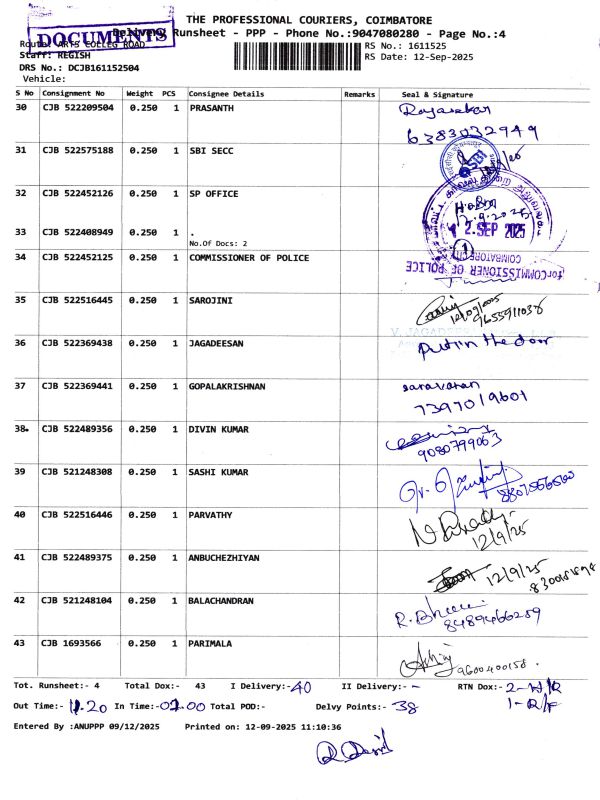 THE PROFESSIONAL COURIERS, COIMBATORE
Delivery Runsheet - PPP - Phone No.:9047080280 - Page No.:4
DOCUMENTS
Route: ARTS COLLEG ROAD
RS No.: 1611525
Staff: REGISH
RS Date: 12-Sep-2025
DRS No.: DCJB161152504
Vehicle:
S No Consignment No Weight PCS Consignee Details Remarks Seal & Signature
30 CJB 522209504 0.250 1 PRASANTH Rajasekar
6383032949
31 CJB 522575188 0.250 1 SBI SECC SBI
32 CJB 522452126 0.250 1 SP OFFICE
12 SEP 2025
33 CJB 522408949 0.250 1 .
No.Of Docs: 2
34 CJB 522452125 0.250 1 COMMISSIONER OF POLICE
COIMBATORE CITY
for COMMISSIONER OF POLICE
35 CJB 522516445 0.250 1 SAROJINI 12/09/2025
9655911038
V. JAGADEES
36 CJB 522369438 0.250 1 JAGADEESAN Put in the door
37 CJB 522369441 0.250 1 GOPALAKRISHNAN saravanan
7397019601
38. CJB 522489356 0.250 1 DIVIN KUMAR
9080799063
39 CJB 521248308 0.250 1 SASHI KUMAR
40 CJB 522516446 0.250 1 PARVATHY
12/9/25
41 CJB 522489375 0.250 1 ANBUCHEZHIYAN 12/9/25
42 CJB 521248104 0.250 1 BALACHANDRAN
8489466259
43 CJB 1693566 0.250 1 PARIMALA
9600400158.
Tot. Runsheet:- 4 Total Dox:- 43 I Delivery:- 40 II Delivery:- - RTN Dox:- 2-N/R
1-R/F
Out Time:- 11.20 In Time:- 02.00 Total POD:- Delvy Points:- 38
Entered By :ANUPPP 09/12/2025 Printed on: 12-09-2025 11:10:36